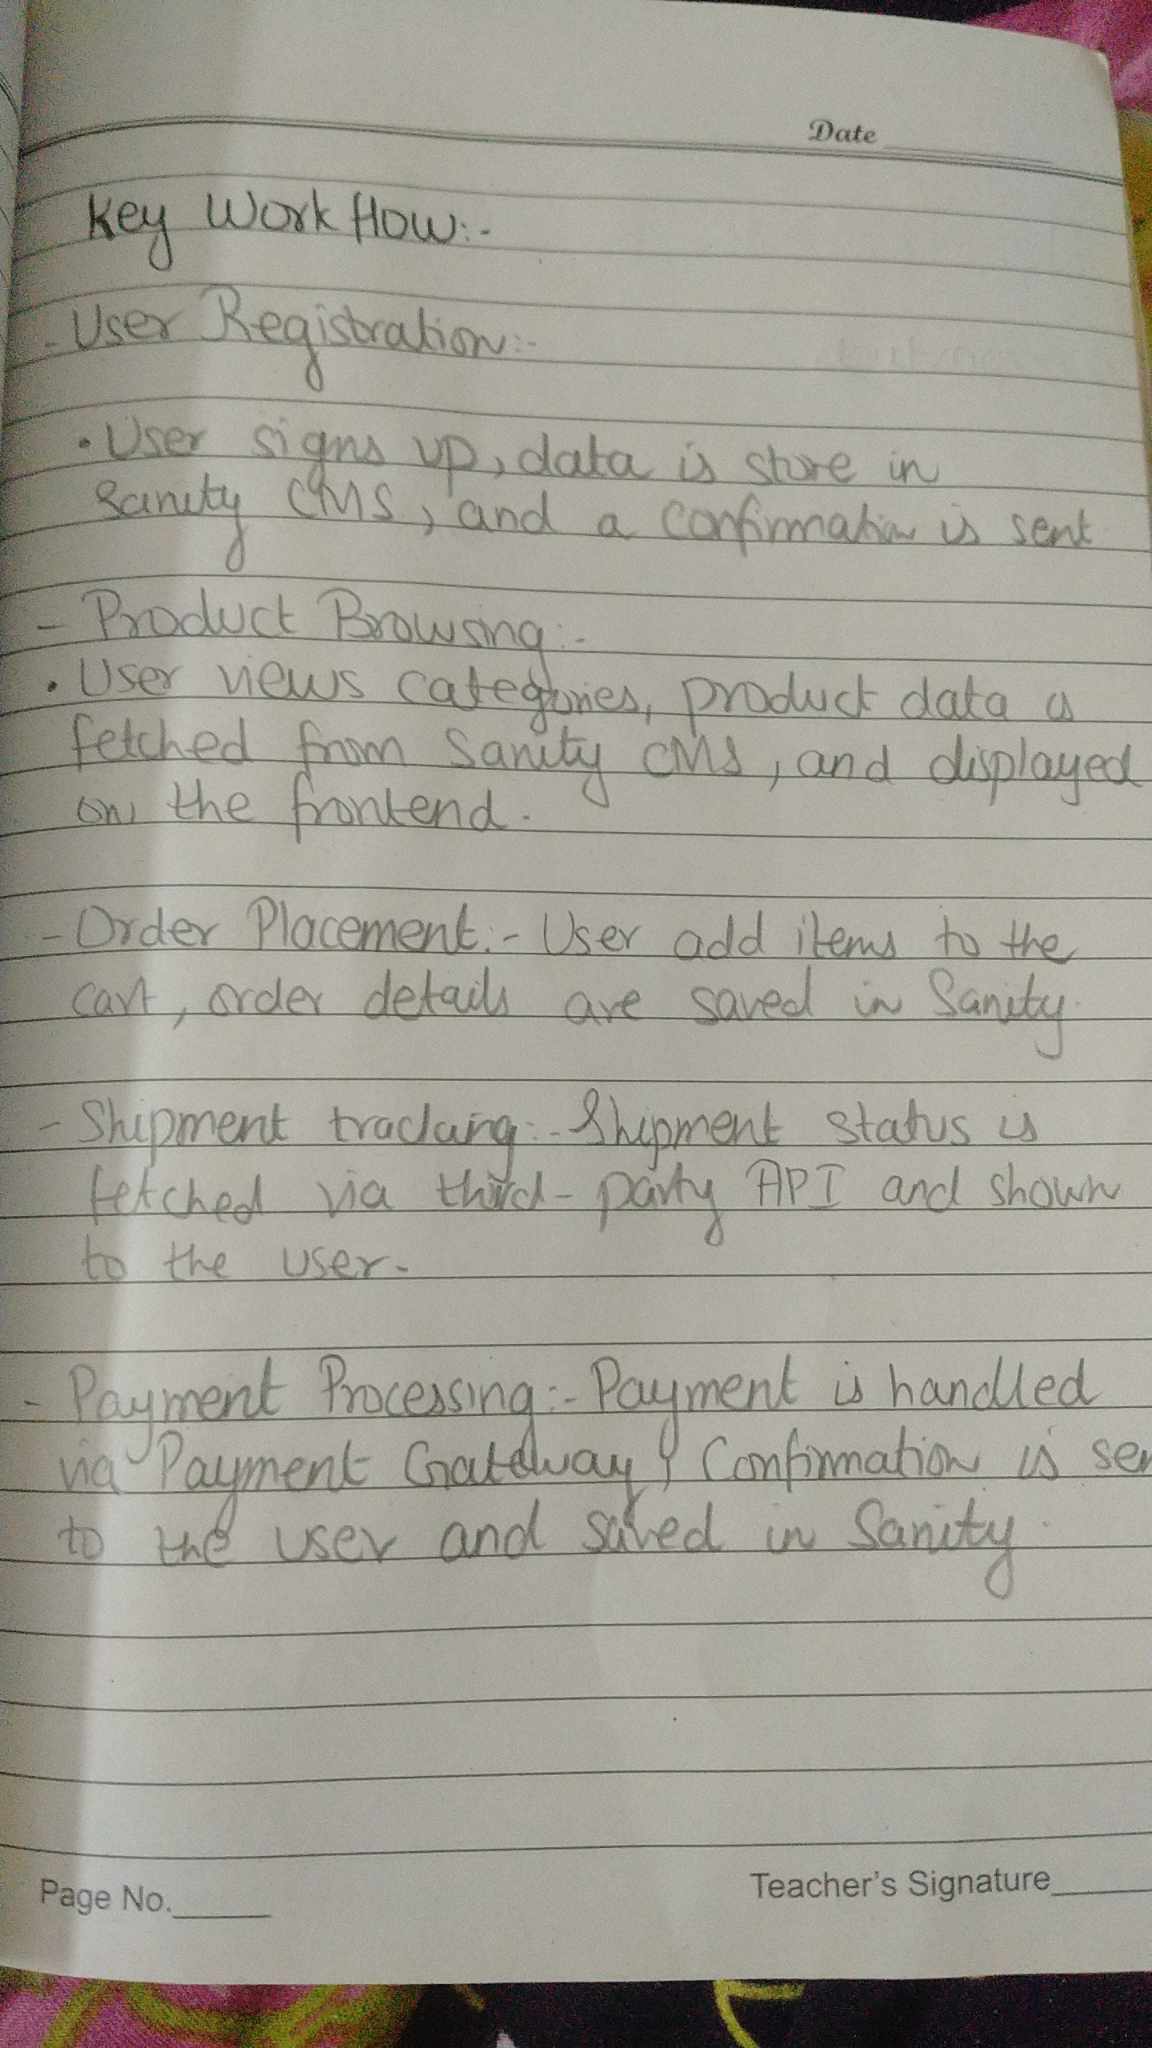 Date
Key Work flow:-
- User Registration:-
• User signs up, data is store in
Sanity CMS, and a confirmation is sent
- Product Browsing:-
• User views categories, product data is
fetched from Sanity CMS, and displayed
on the frontend.
- Order Placement:- User add items to the
cart, order details are saved in Sanity.
- Shipment tracking:- Shipment status is
fetched via third-party API and shown
to the user.
- Payment Processing:- Payment is handled
via Payment Gateway, Confirmation is sen
to the user and saved in Sanity.
Page No. Teacher's Signature